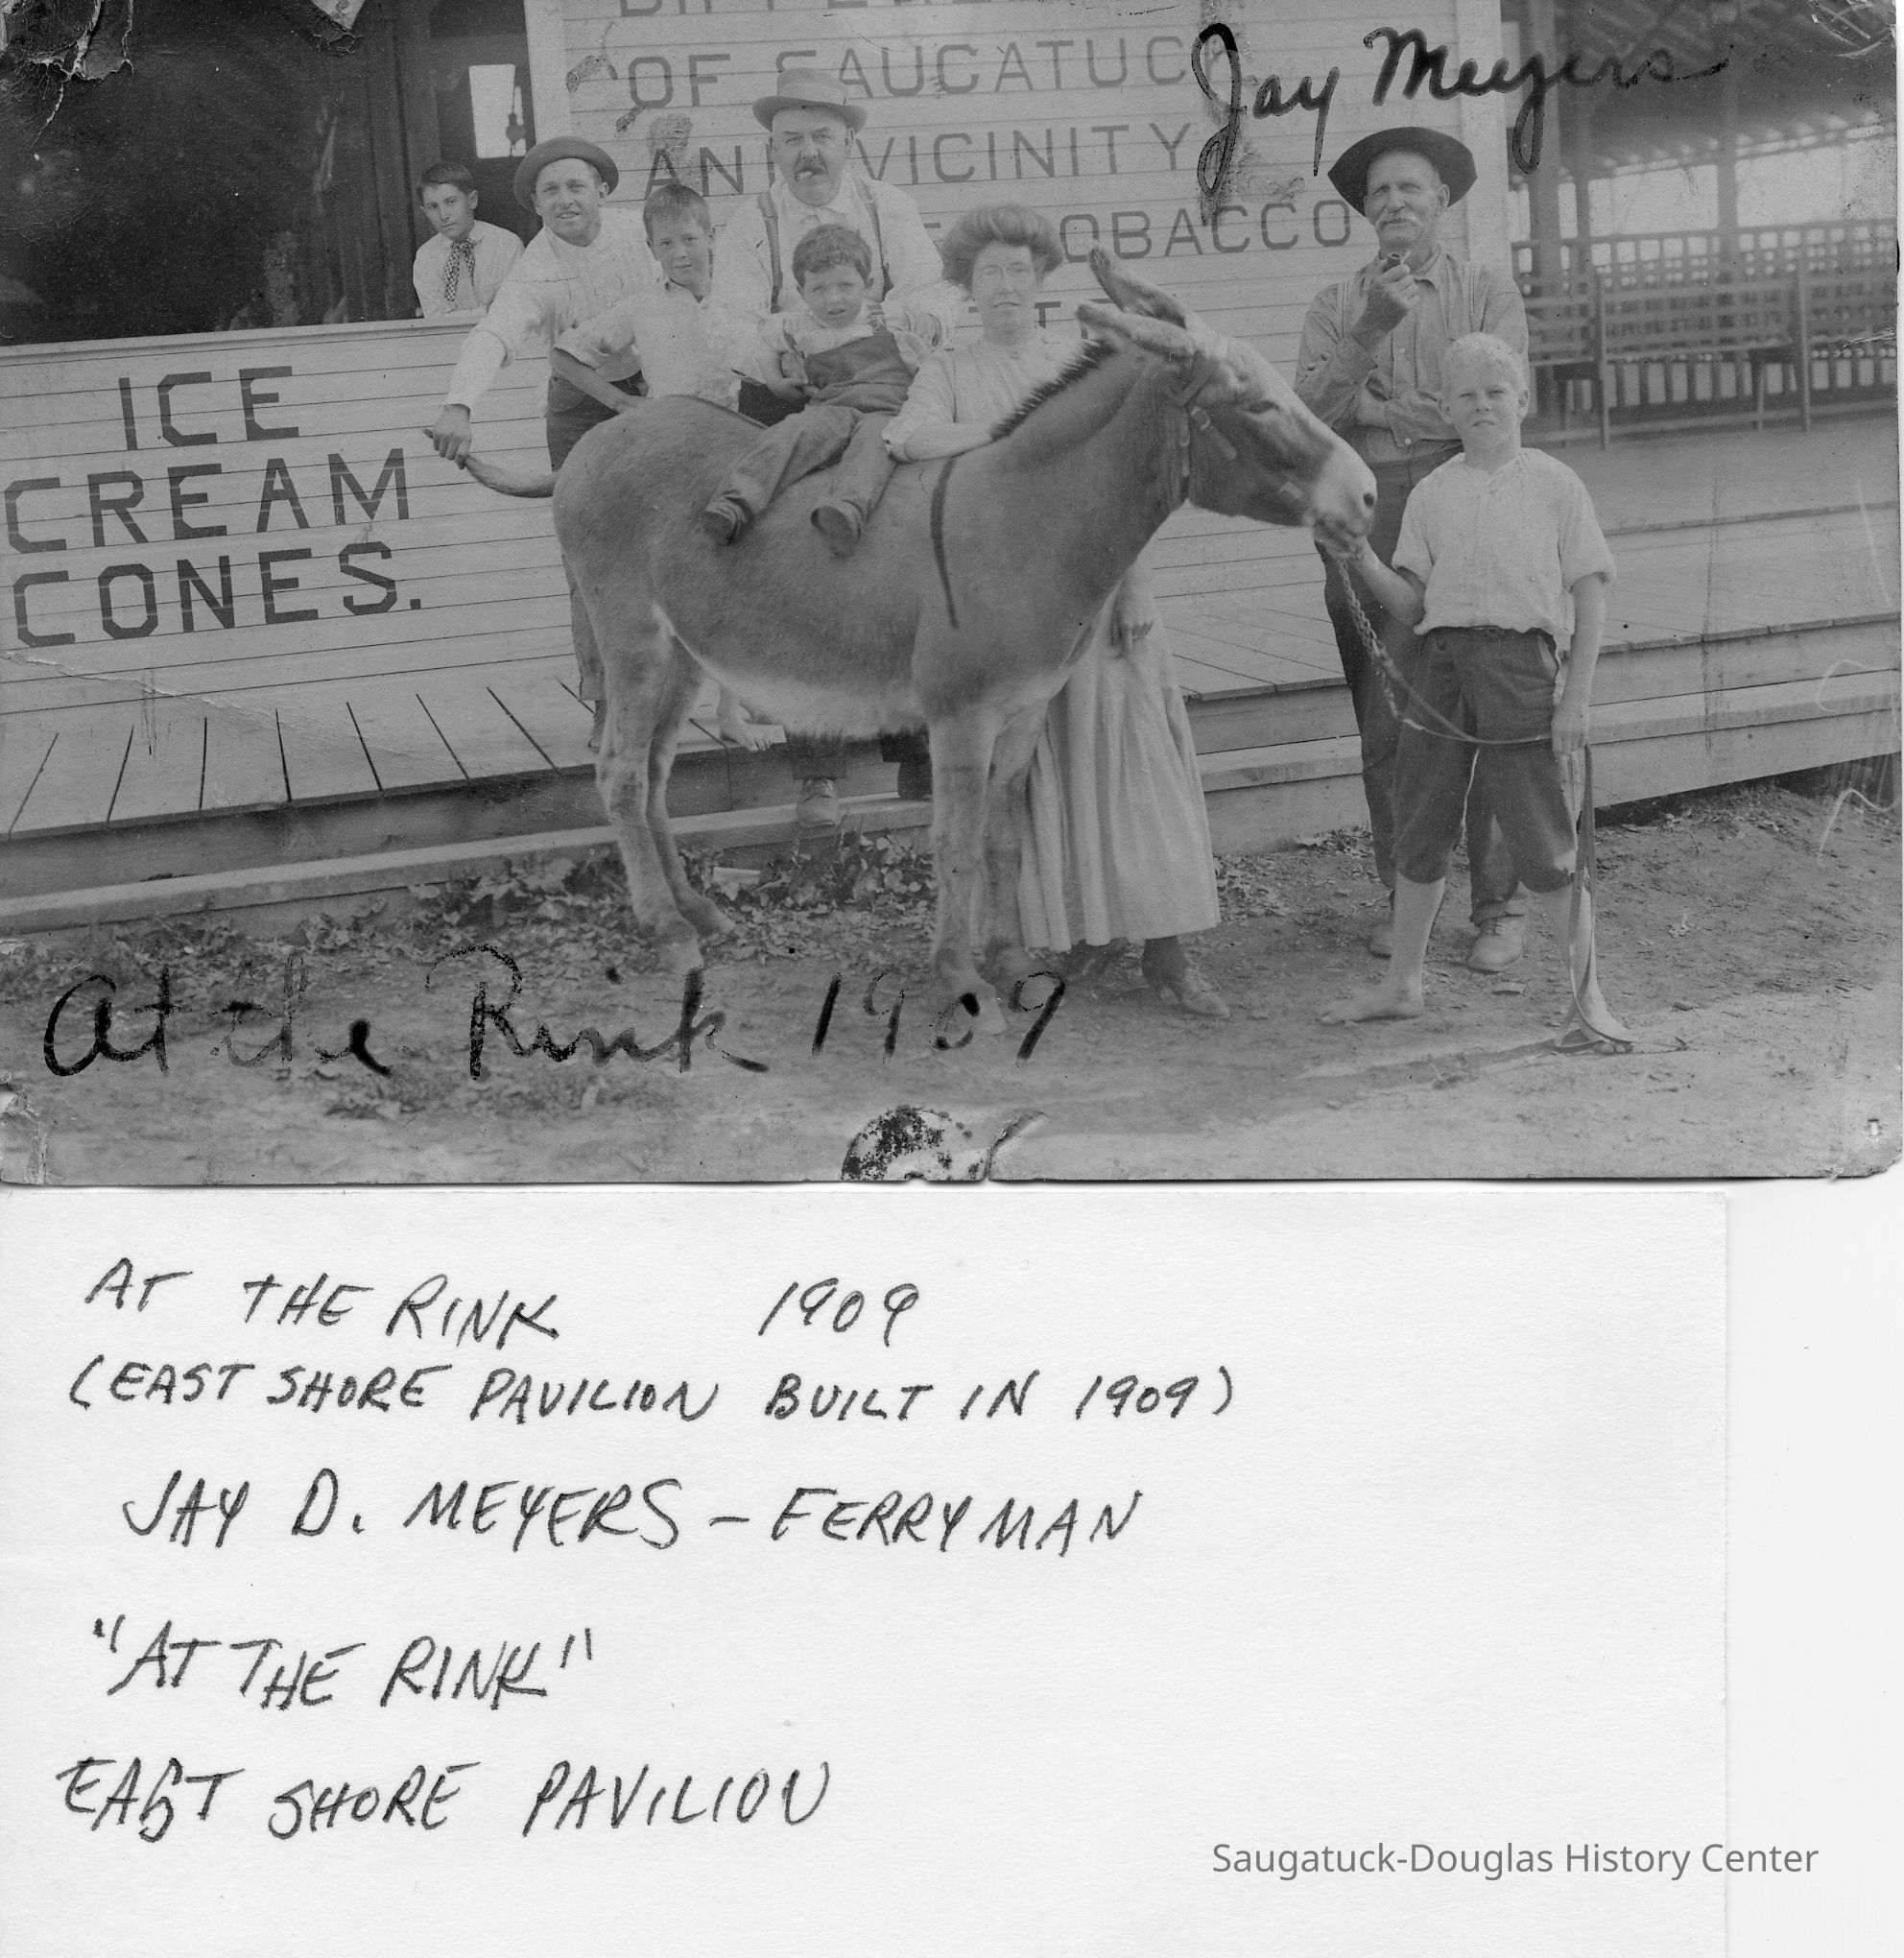 OF SAUGATUCK
Jay Meyers
AND VICINITY
TOBACCO
ICE
CREAM
CONES.
At the Rink 1909
AT THE RINK 1909
(EAST SHORE PAVILION BUILT IN 1909)
JAY D. MEYERS - FERRYMAN
"AT THE RINK"
EAST SHORE PAVILION
Saugatuck-Douglas History Center